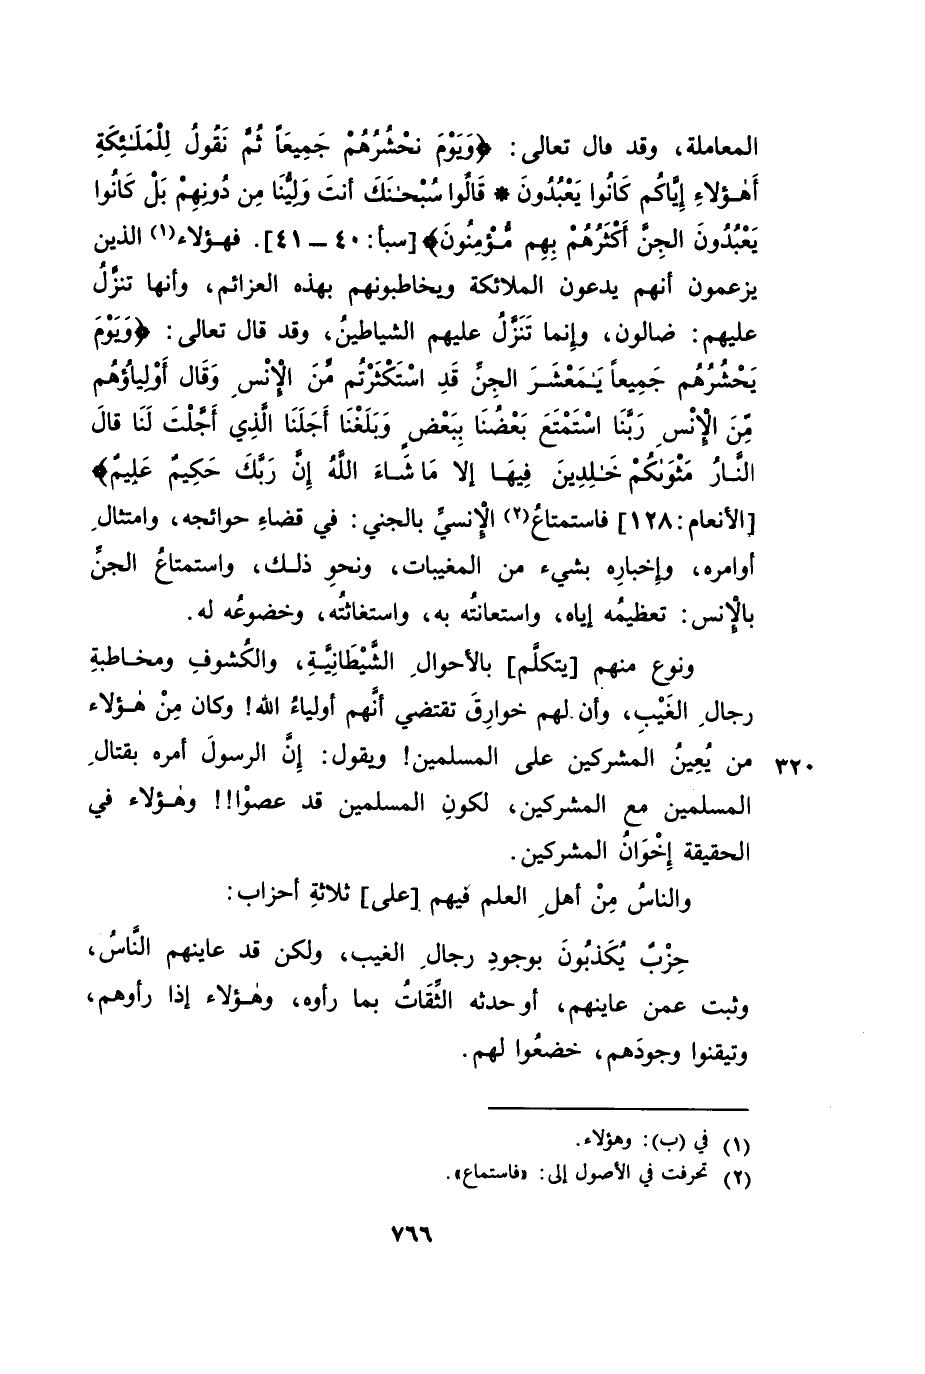 المعاملة، وقد قال تعالى: ﴿وَيَوْمَ نَحْشُرُهُمْ جَمِيعَاً ثُمَّ نَقُولُ لِلْمَلَـٰئِكَةِ
أَهٰـؤلاءِ إِيَّاكُم كَانُوا يَعْبُدُونَ * قَالُوا سُبْحـٰنَكَ أنتَ وَلِيُّنَا مِن دُونِهِمْ بَلْ كَانُوا
يَعْبُدُونَ الجِنَّ أَكْثَرُهُمْ بِهِم مُّؤْمِنُونَ﴾ [سبأ: ٤٠ ــ ٤١]. فهـؤلاء(١) الذين
يزعمون أنهم يدعون الملائكة ويخاطبونهم بهذه العزائم، وأنها تنزَّلُ
عليهم: ضالون، وإنما تَنَزَّلُ عليهم الشياطينُ، وقد قال تعالى: ﴿وَيَوْمَ
يَحْشُرُهُم جَمِيعاً يَـٰمَعْشَـرَ الجِنِّ قَدِ اسْتَكْثَرْتُم مِّنَ الْإِنْسِ وَقَال أَوْلِياؤُهُم
مِّنَ الْإِنْسِ رَبَّنَا اسْتَمْتَعَ بَعْضُنَا بِبَعْضٍ وَبَلَغْنَا أَجَلَنَا الَّذِي أَجَّلْتَ لَنَا قالَ
النَّـارُ مَثْوَىٰكُمْ خَـٰلِدِينَ فِيهَـا إلا مَا شَـاءَ اللَّهُ إِنَّ رَبَّكَ حَكِيمٌ عَلِيمٌ﴾
[الأنعام: ١٢٨] فاستمتاعُ(٢) الْإِنسيِّ بالجني: في قضاءِ حوائجه، وامتثالِ
أوامره، وإخبارِه بشيء من المغيبات، ونحوِ ذلـك، واستمتاعُ الجنِّ
بالْإِنس: تعظيمُه إياه، واستعانتُه به، واستغاثتُه، وخضوعُه له.
ونوع منهم [يتكلَّم] بالأحوالِ الشَّيْطَانِيَّـةِ، والكُشوفِ ومخـاطبةِ
رجالِ الغَيْبِ، وأن لهم خوارِقَ تقتضي أنَّهم أولياءُ الله! وكان مِنْ هٰـؤلاء
من يُعِينُ المشركين على المسلمين! ويقول: إنَّ الرسولَ أمره بقتالِ ٣٢٠
المسلمين مع المشركين، لكونِ المسلمين قد عصوْا!! وهٰـؤلاء في
الحقيقة إِخْوَانُ المشركين.
والناسُ مِنْ أهلِ العلم فيهم [على] ثلاثةِ أحزاب:
حِزْبٌ يُكَذبُونَ بوجودِ رجالِ الغيب، ولكن قد عاينهم النَّاسُ،
وثبت عمن عاينهم، أو حدثه الثِّقَاتُ بما رأوه، وهٰـؤلاء إذا رأوهم،
وتيقنوا وجودَهم، خضعُوا لهم.
(١) في (ب): وهؤلاء.
(٢) تحرفت في الأصول إلى: «فاستماع».
٧٦٦